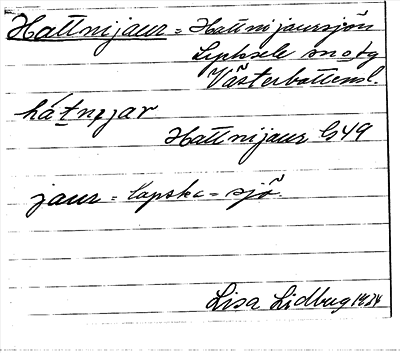 Hattnijaur = Hattnijaursjön
Lycksele sn o. tg
Västerbottens l.
hátnɩjar
Hattnijaur G 49
jaur = lapska = sjö.
Lisa Lidberg 1924